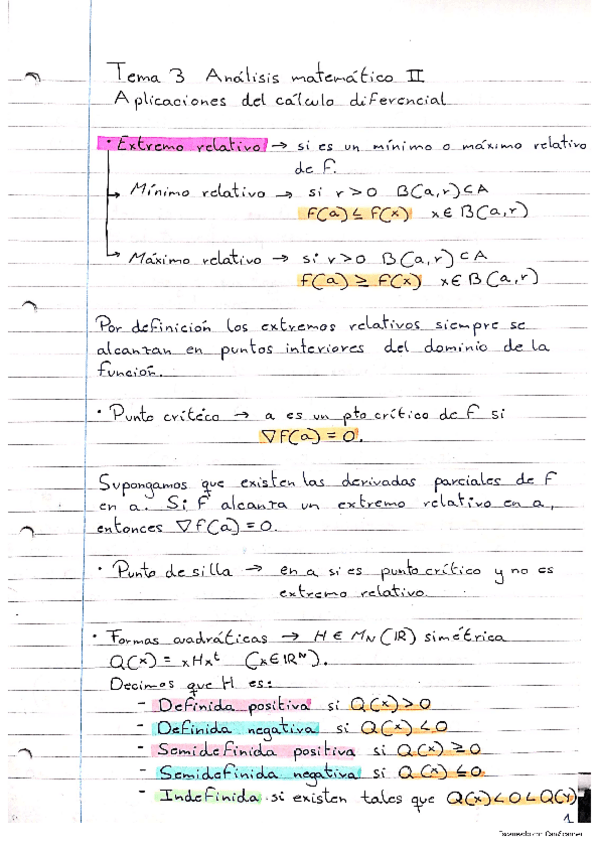 Tema 3 Análisis matemático II
Aplicaciones del cálculo diferencial
· Extremo relativo → si es un mínimo o máximo relativo
de f.
→ Mínimo relativo → si r>0 B(a,r)⊂A
f(a) ≤ f(x) x∈B(a,r)
→ Máximo relativo → si r>0 B(a,r)⊂A
f(a) ≥ f(x) x∈B(a,r)
Por definición los extremos relativos siempre se
alcanzan en puntos interiores del dominio de la
función.
· Punto crítico → a es un pto crítico de f si
∇f(a) = 0.
Supongamos que existen las derivadas parciales de f
en a. Si f alcanza un extremo relativo en a,
entonces ∇f(a) = 0.
· Punto de silla → en a si es punto crítico y no es
extremo relativo.
· Formas cuadráticas → H ∈ M_N(ℝ) simétrica
Q(x) = xHxᵗ (x∈ℝᴺ).
Decimos que H es:
- Definida positiva si Q(x)>0
- Definida negativa si Q(x)<0
- Semidefinida positiva si Q(x) ≥ 0
- Semidefinida negativa si Q(x) ≤ 0
- Indefinida si existen tales que Q(x)<0<Q(y)
1
Escaneado con CamScanner